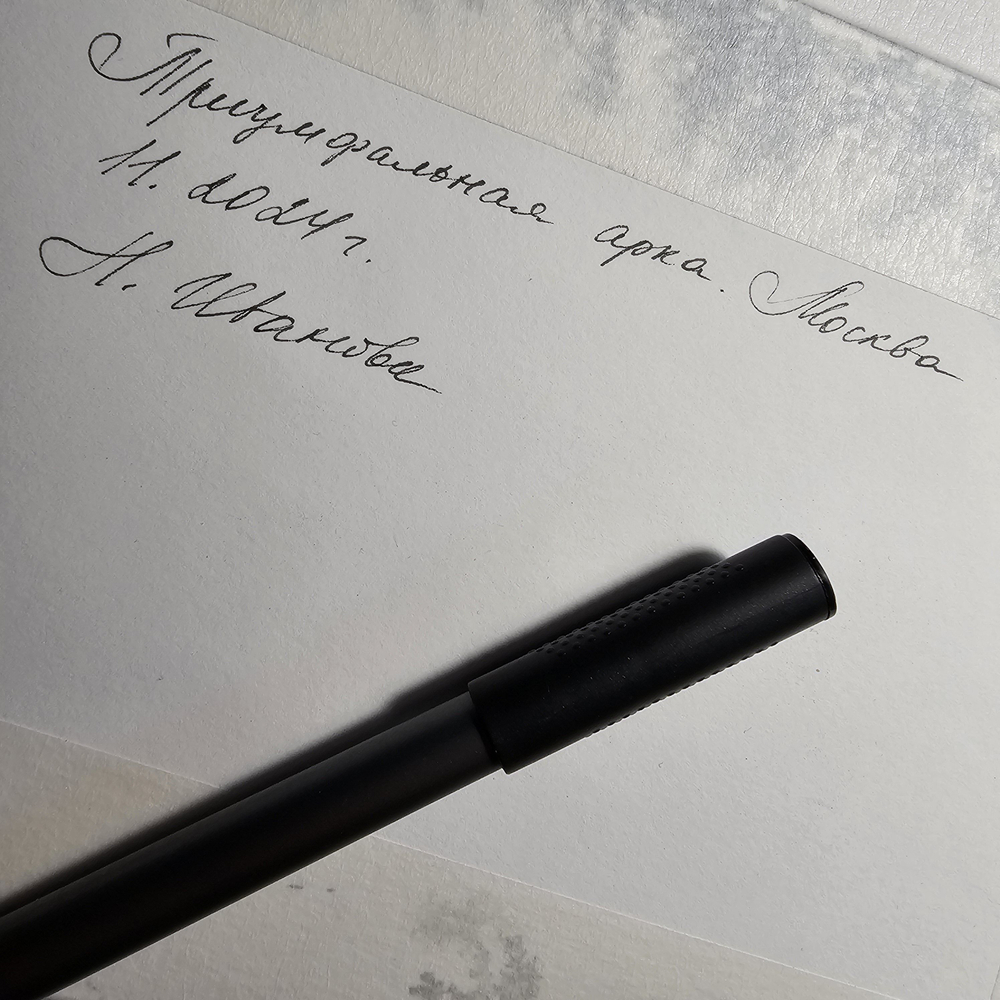 Триумфальная арка. Москва
11. 2024 г.
Н. Иванова